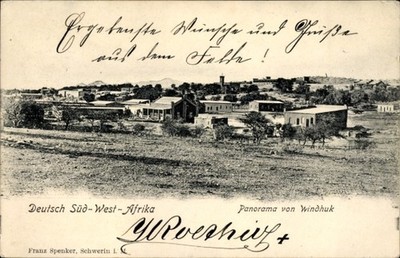 Ergebenste Wünsche und Grüße
aus dem Felde!
Deutsch Süd-West-Afrika
Panorama von Windhuk
Franz Spenker, Schwerin i. M.